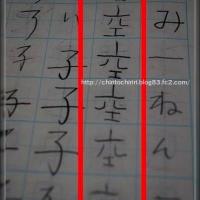 みーねん
空空空空
い子子子
子子子
http://chintochitiri.blog83.fc2.com/